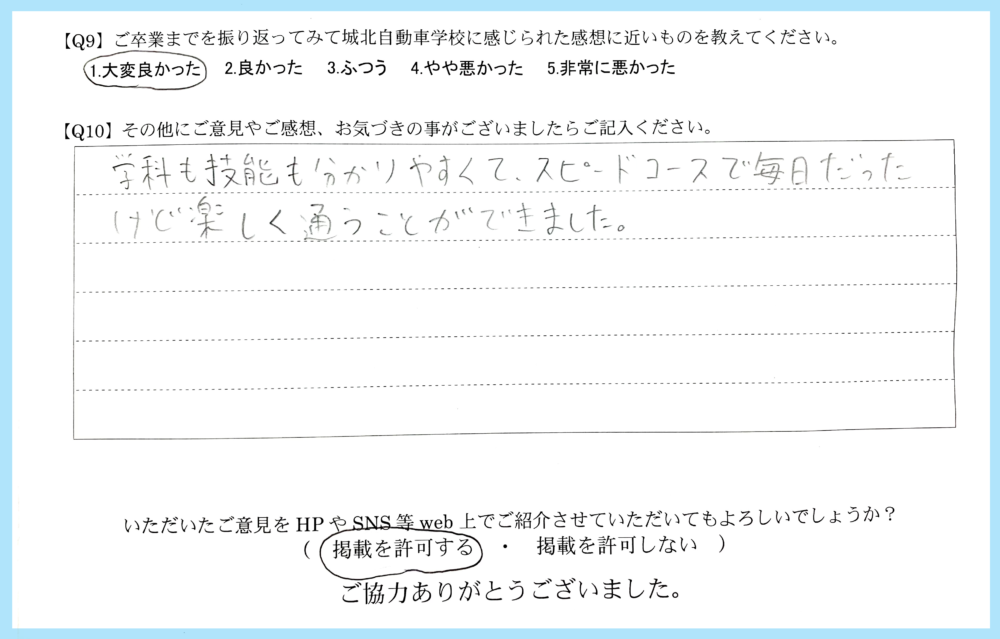 【Q9】ご卒業までを振り返ってみて城北自動車学校に感じられた感想に近いものを教えてください。
1.大変良かった 2.良かった 3.ふつう 4.やや悪かった 5.非常に悪かった
【Q10】その他にご意見やご感想、お気づきの事がございましたらご記入ください。
学科も技能も分かりやすくて、スピードコースで毎日だった
けど楽しく通うことができました。
いただいたご意見をHPやSNS等web上でご紹介させていただいてもよろしいでしょうか？
（ 掲載を許可する ・ 掲載を許可しない ）
ご協力ありがとうございました。